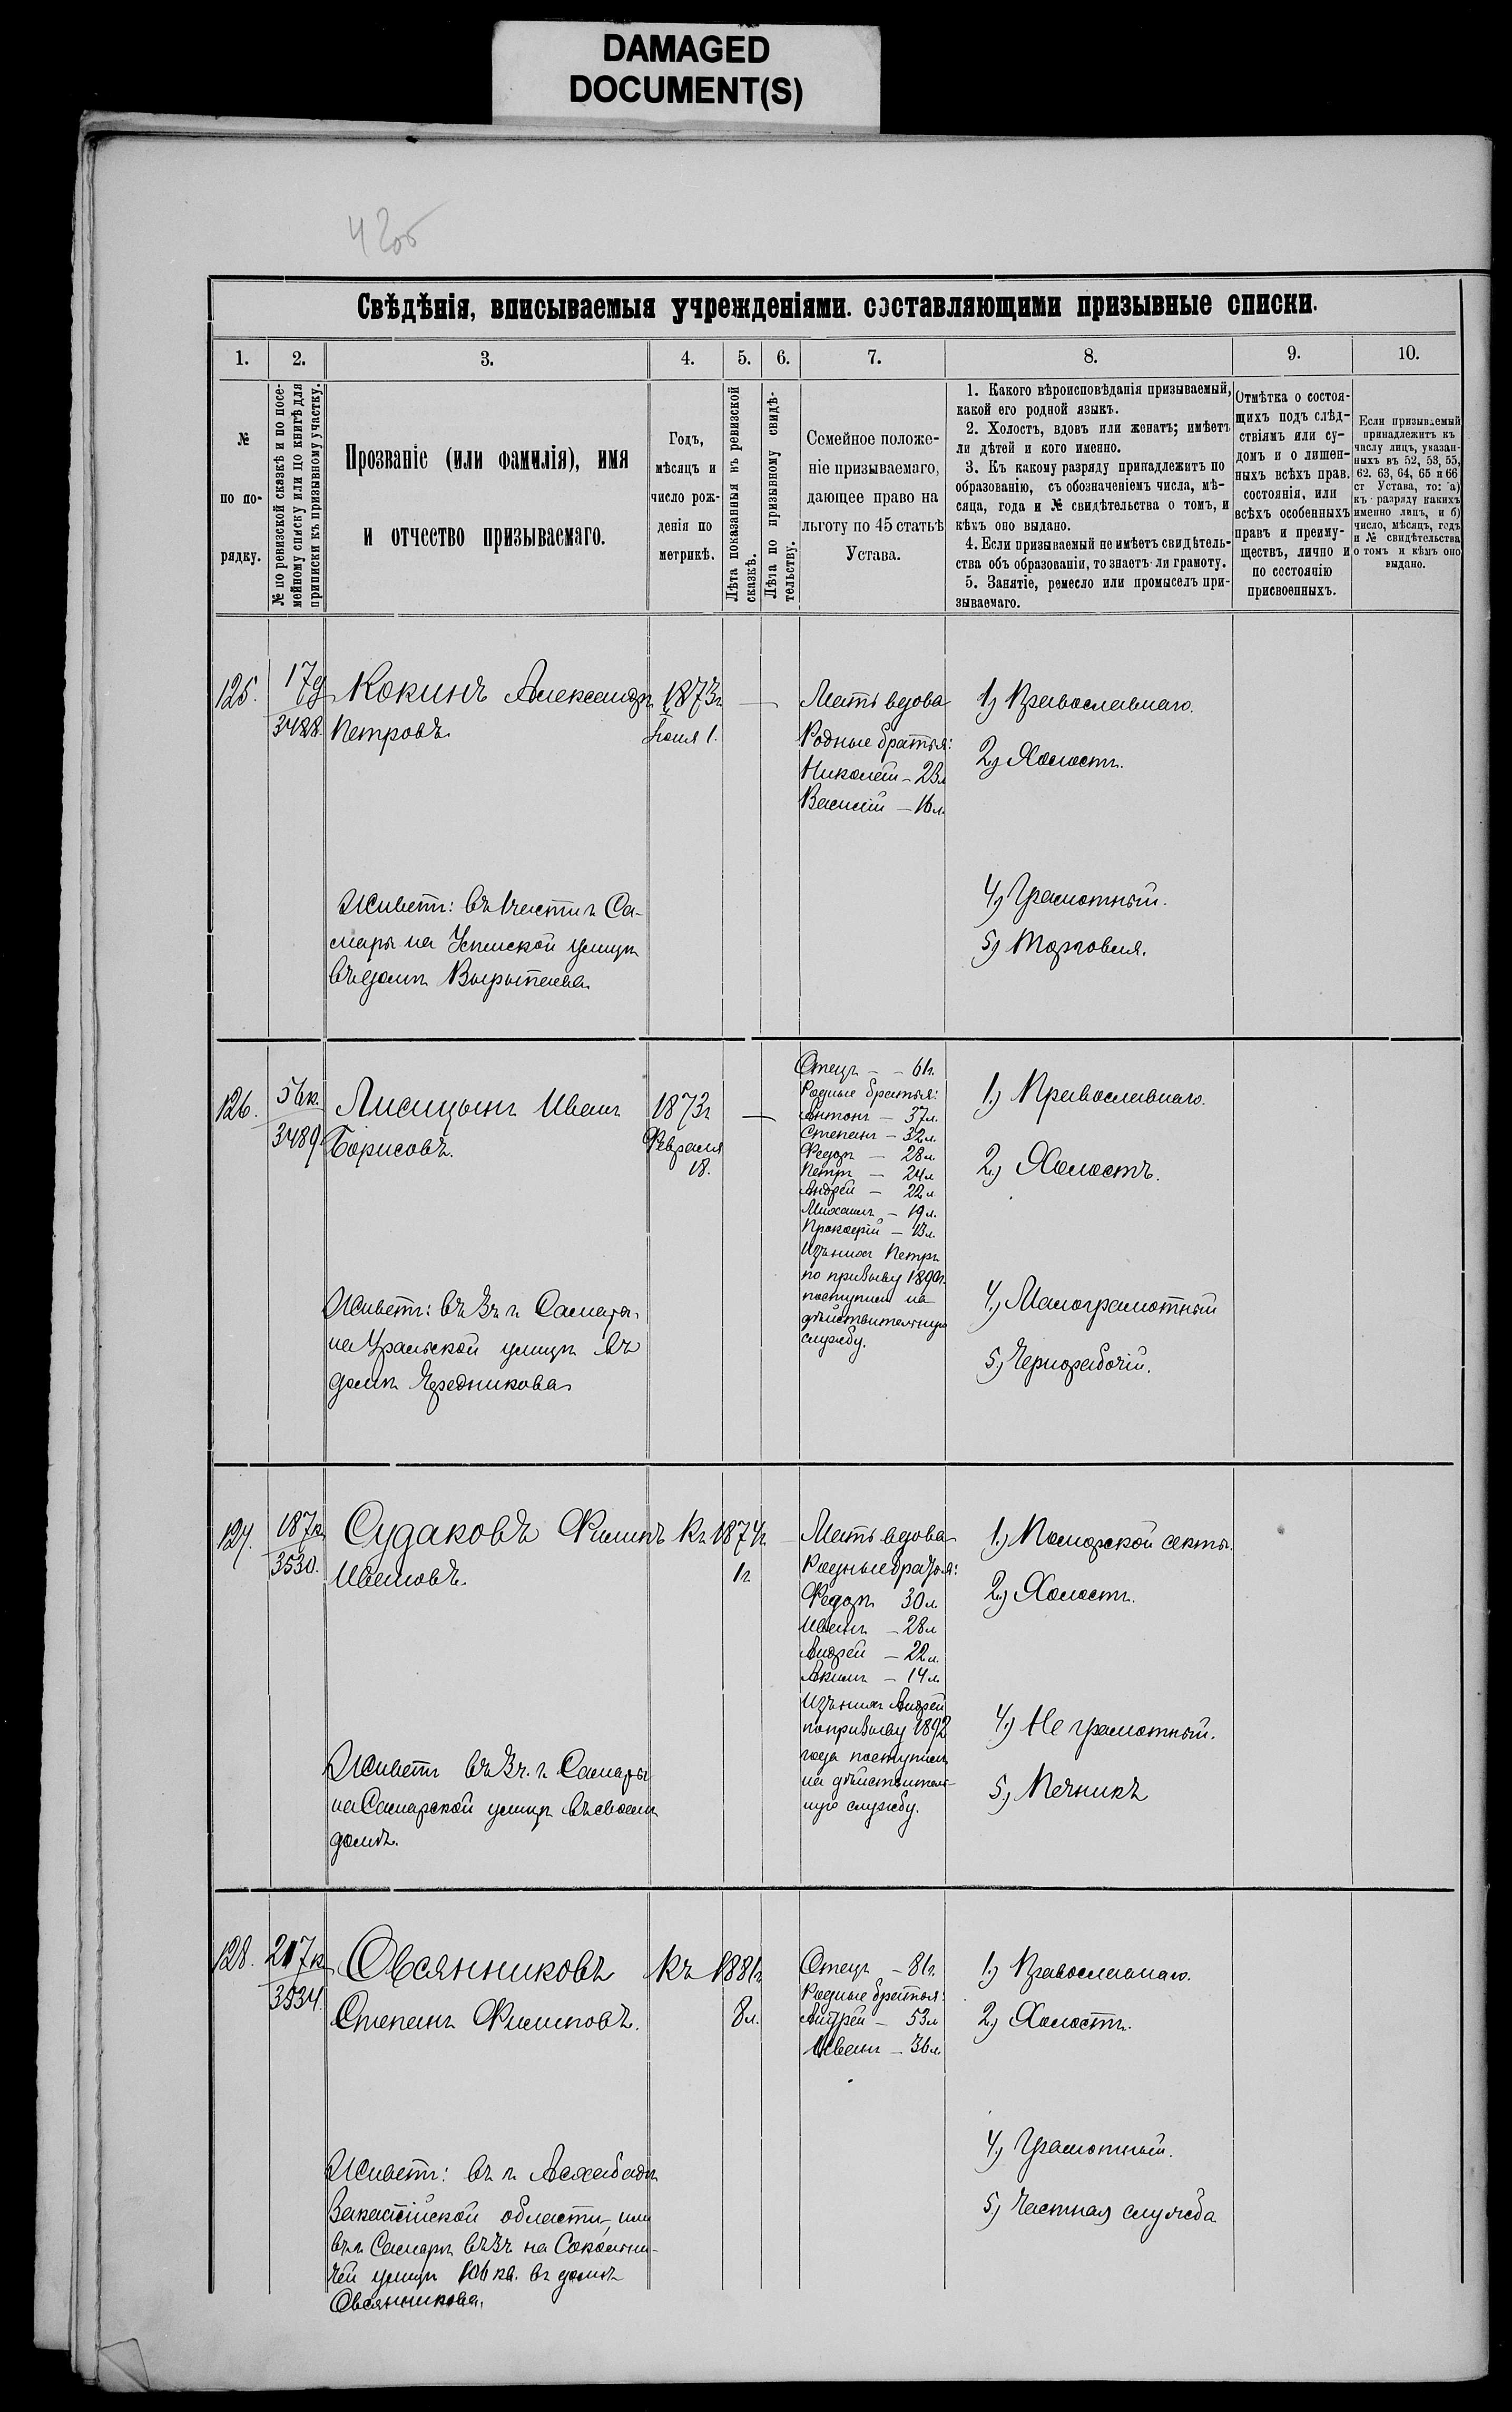 DAMAGED
DOCUMENT(S)
42об
Свѣдѣнія, вписываемыя учрежденіями, составляющими призывные списки.
1. 2. 3. 4. 5. 6. 7. 8. 9. 10.
№
по по-
рядку.
№ по ревизской сказкѣ и по посе-
мейному списку или по книгѣ для
приписки къ призывному участку.
Прозваніе (или фамилія), имя
и отчество призываемаго.
Годъ,
мѣсяцъ и
число рож-
денія по
метрикѣ.
Лѣта показанныя къ ревизской
сказкѣ.
Лѣта по призывному свидѣ-
тельству.
Семейное положе-
ніе призываемаго,
дающее право на
льготу по 45 статьѣ
Устава.
1. Какого вѣроисповѣданія призываемый,
какой его родной языкъ.
2. Холостъ, вдовъ или женатъ; имѣетъ
ли дѣтей и кого именно.
3. Къ какому разряду принадлежитъ по
образованію, съ обозначеніемъ числа, мѣ-
сяца, года и № свидѣтельства о томъ, и
кѣмъ оно выдано.
4. Если призываемый не имѣетъ свидѣтель-
ства объ образованіи, то знаетъ ли грамоту.
5. Занятіе, ремесло или промыселъ при-
зываемаго.
Отмѣтка о состоя-
щихъ подъ слѣд-
ствіямъ или су-
домъ и о лишен-
ныхъ всѣхъ прав.
состоянія, или
всѣхъ особенныхъ
правъ и преиму-
ществъ, лично и
по состоянію
присвоенныхъ.
Если призываемый
принадлежитъ къ
числу лицъ, указан-
ныхъ въ 52, 53, 55,
62, 63, 64, 65 и 66
ст Устава, то: а)
къ разряду какихъ
именно лицъ, и б)
число, мѣсяцъ, годъ
и № свидѣтельства
о томъ и кѣмъ оно
выдано.
125.
3488.
Кокинъ Александръ
Петровъ.
1873г
Іюля 1.
Мать вдова
Родные братья:
Николай – 23л
Василій – 16л.
1) Православнаго.
2) Холостъ.
4) Грамотный.
5) Торговля.
Живетъ: въ 1 части г. Са-
мары на Успенской улицѣ
въ домѣ Вырыпаева
126.
56к.
3489.
Лисицынъ Иванъ
Борисовъ.
1873г
Февраля
18.
Отецъ – – 61г.
Родные братья:
Антонъ – 37л.
Степанъ – 32л.
Федоръ – 28л
Петръ – 24л
Андрей – 22л
Михаилъ – 19л.
Прокофій – 13л.
Изъ нихъ Петръ
по призыву 1890г.
поступилъ на
дѣйствительную
службу.
1.) Православнаго.
2.) Холостъ.
4.) Малограмотный
5.) Чернорабочій.
Живетъ: въ 3ч г. Самары,
на Уральской улицѣ въ
домѣ Чередникова
127.
187к
3530.
Судаковъ Филипъ
Ивановъ.
Къ 1874г.
1г.
Мать вдова
Родные братья:
Федоръ 30л.
Иванъ – 28л
Андрей – 22л.
Акимъ – 14л
Изъ нихъ Андрей
по призыву 1892
года поступилъ
на дѣйствитель-
ную службу.
1.) Поморской секты.
2.) Холостъ.
4.) Не грамотный.
5.) Печникъ
Живетъ въ 3ч. г. Самары
на Самарской улицѣ въ своемъ
домѣ.
128.
217к
3534.
Овсянниковъ
Степанъ Филиповъ.
Къ 1881г
8л.
Отецъ – 81г.
Родные братья:
Андрей – 53л
Иванъ – 36л
1.) Православнаго.
2.) Холостъ.
4.) Грамотный.
5.) Частная служба
Живетъ: въ г. Асхабадѣ
Закаспійской области, или
въ г. Самарѣ въ 3ч на Соколь-
чей улицѣ 106 кв. въ домѣ
Овсянникова.